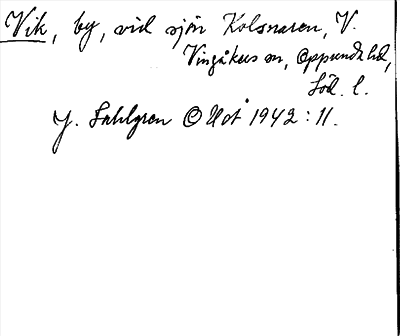 Vik, by, vid sjön Kolsnaren, V.
Vingåkers sn, Oppunda hd,
Söd. l.
J. Sahlgren O Uot 1942 : 11.